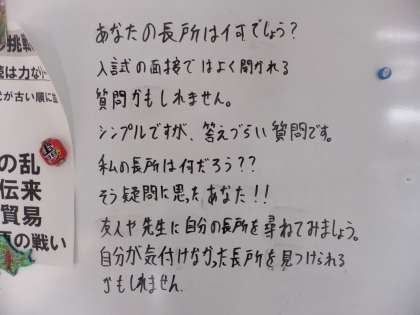 あなたの長所は何でしょう？
入試の面接ではよく聞かれる
質問かもしれません。
シンプルですが、答えづらい質問です。
私の長所は何だろう？？
そう疑問に思ったあなた！！
友人や先生に自分の長所を尋ねてみましょう。
自分が気付けなかった長所を見つけられる
かもしれません。
挑戦
は力な
が古い順に
の乱
伝来
貿易
の戦い